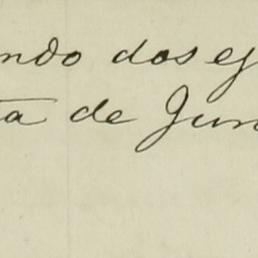 ndo dos ej
ta de Jun